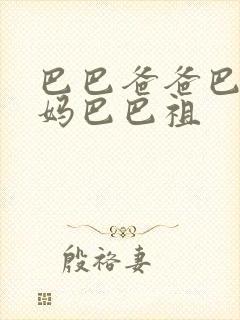 巴巴爸爸巴
妈巴巴祖
殷裕妻